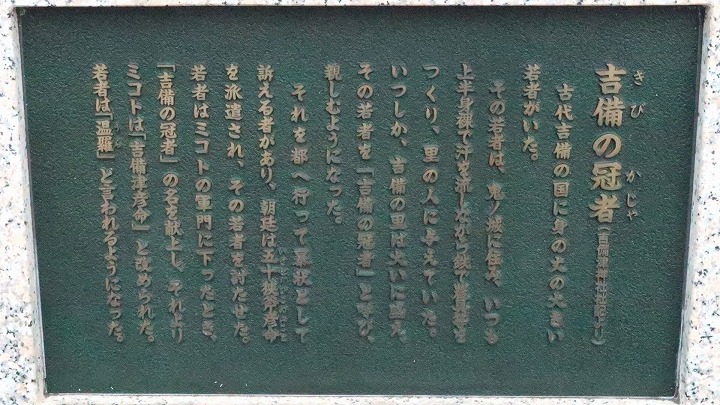 吉備の冠者（吉備津神社社記より）
きび かじゃ
古代吉備の国に身の丈の大きい
若者がいた。
その若者は、鬼ノ城に住み、いつも
上半身裸で汗を流しながら鉄で農具を
つくり、里の人に与えていた。
いつしか、吉備の里は大いに富え、
その若者を「吉備の冠者」と呼び、
親しむようになった。
それを都へ行って悪状として
訴える者があり、朝廷は五十狭芹彦命
を派遣され、その若者を討たせた。
若者はミコトの軍門に下ったとき、
「吉備の冠者」の名を献上し、それより
ミコトは「吉備津彦命」と改められた。
若者は「温羅」と言われるようになった。